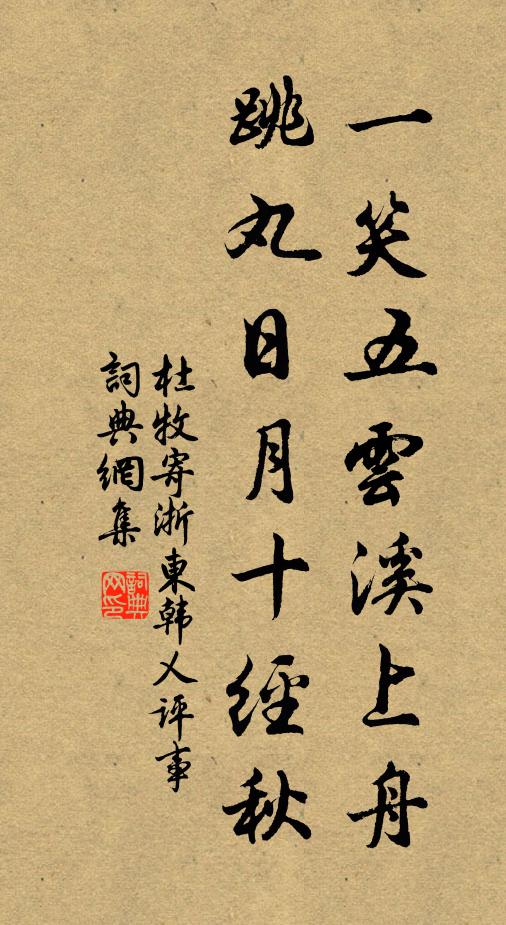 一笑五雲溪上舟
跳丸日月十經秋
杜牧寄浙東韩乂评事
詞典網集
詞典网印